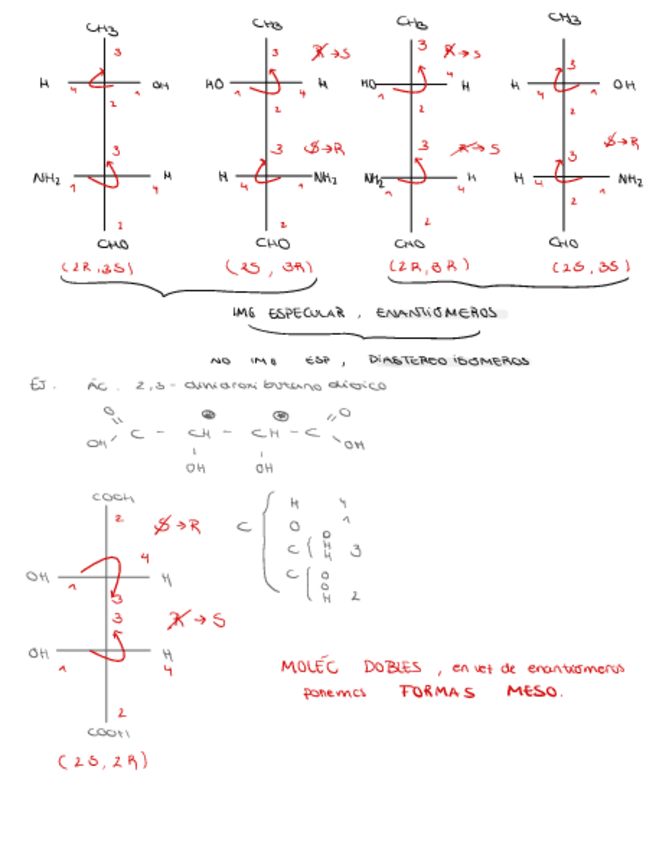 CH3 CH3 CH3 CH3
3 3 R→S 3 R→S 3
H 4 1 OH HO 1 4 H HO 1 4 H H 4 1 OH
2 2 2 2
3 3 S→R 3 R→S 3 S→R
NH2 1 4 H H 4 1 NH2 NH2 1 4 H H 4 1 NH2
2 2 2 2
CHO CHO CHO CHO
(2R,3S) (2S, 3R) (2R,3R) (2S,3S)
IMG ESPECULAR, ENANTIÓMEROS
NO IMG ESP, DIASTEREOISÓMEROS
EJ. ÁC. 2,3-dihidroxi butano dioico
O O
OH C - CH - CH - C OH
OH OH
COOH
2 S→R
4
OH 1 H
3
3 R→S
OH 1 H
4
2
COOH
(2S, 2R)
C H 4
O 1
C O H H 3
C O O H 2
MOLÉC DOBLES, en vez de enantiómeros
ponemos FORMAS MESO.